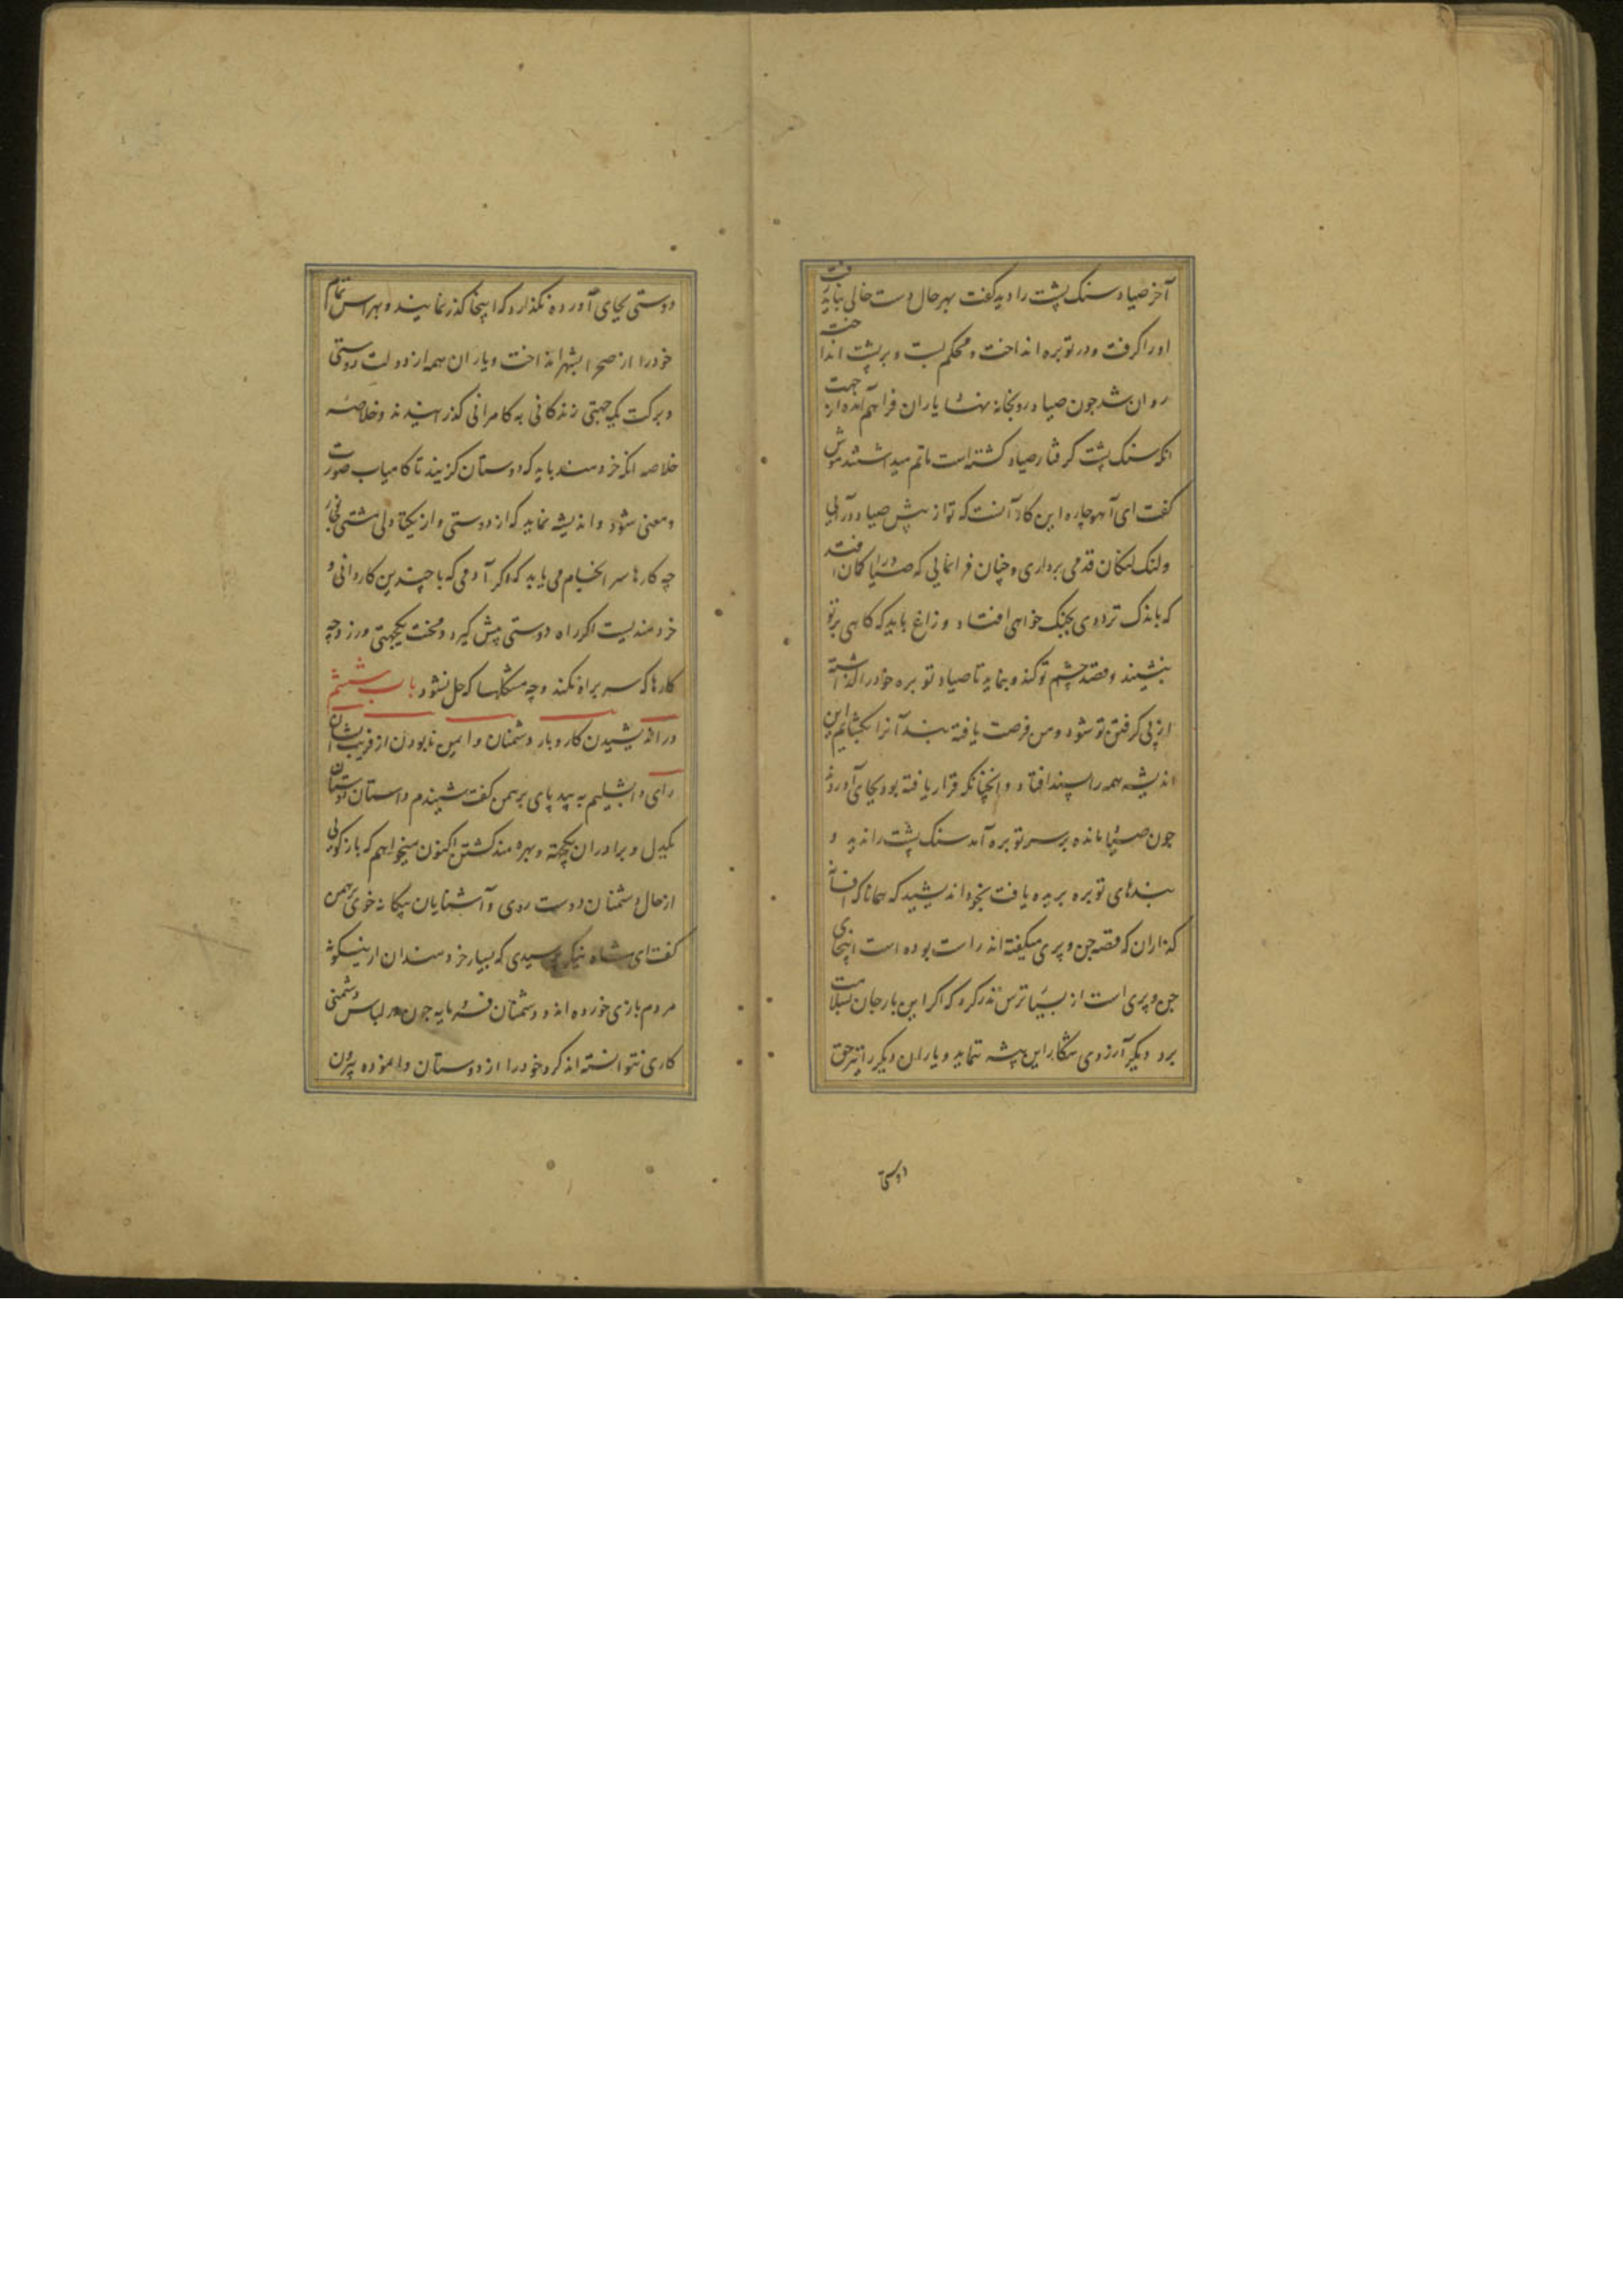 آخر صیاد سنک پشت را دید کفت بهر حال دست خالی نباید رفت
اورا کرفت و در توبره انداخت و محکم بست و بر پشت انداخت
روان شد چون صیاد رو بخانه نهاد یاران فراهم آمده از جهت
انکه سنک پشت کرفتار صیاد کشته است ماتم میداشتند موش
کفت ای آهو چاره این کار آنست که تو از پیش صیاد در آیی
و لنک لنکان قدمی برداری و چنان فرا نمایی که صیاد را کمان افتد
که باندک ترددی بچنک خواهی افتاد و زاغ باید که کاهی بر تو
بنشیند و قصد چشم تو کند و بنماید تا صیاد توبره خود را کذاشته
از پی کرفتن تو شود و من فرصت یافته بند آنرا بکشایم این
اندیشه همه را پسند افتاد و انچنانکه قرار یافته بود بجای آوردند
چون صیاد مانده بر سر توبره آمد سنک پشت را ندید و
بندهای توبره بریده یافت بخود اندیشید که همانا که افسانه
کذاران که قصه جن و پری میکفته اند راست بوده است اینجا جای
جن و پری است از بسیار ترس نذر کرد که اکر این بار جان بسلامت
برد دیکر آرزوی شکار این بیشه ننماید و یاران دیکر را نیز حق
دوستی
دوستی بجای آورده نکذارد که اینجا کذر نمایند و بهراس تمام
خود را از صحرا بشهر انداخت و یاران همه از دولت دوستی
و برکت یک جهتی زندکانی به کامرانی کذرانیدند و خلاصه
خلاصه انکه خردمند باید که دوستان کزیند تا کامیاب صورت
و معنی شود و اندیشه نماید که از دوستی و از یکتا دلی مشتی جانور
چه کارها سر انجام می یابد که اکر آدمی که با چندین کاردانی و
خردمندیست اکر راه دوستی پیش کیرد و محنت یکجهتی ورزد چه
کارها که سر براه نکند و چه مشکلها که حل نشود باب ششم
در اندیشیدن کار و بار دشمنان و ایمن نابودن از فریب ایشان
رای دابشلیم به بید پای برهمن کفت شنیدم داستان دوستان
یکدل و برادران یکجهته و بهره مند کشتن اکنون میخواهم که باز کویی
از حال دشمنان دوست روی و آشنایان بیکانه خوی برهمن
کفت ای شاه نیک پرسیدی که بسیار خردمندان ازینکونه
مردم بازی خورده اند و دشمنان فرومایه چون در لباس دشمنی
کاری نتوانسته اند کرد خود را از دوستان وانموده بیرون